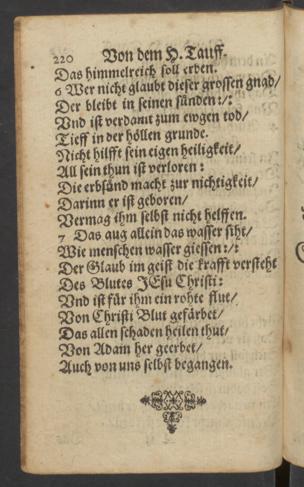 220 Von dem H. Tauff.
Das himmelreich soll erben.
6 Wer nicht glaubt dieser grossen gnad/
Der bleibt in seinen sünden:/:
Vnd ist verdamt zum ewgen tod/
Tieff in der höllen grunde.
Nicht hilfft sein eigen heiligkeit/
All sein thun ist verloren:
Die erbsünd macht zur nichtigkeit/
Darinn er ist geboren/
Vermag ihm selbst nicht helffen.
7 Das aug allein das wasser siht/
Wie menschen wasser giessen:/:
Der Glaub im geist die krafft versteht
Des Blutes JEsu Christi:
Vnd ist für ihm ein rohte flut/
Von Christi Blut gefärbet/
Das allen schaden heilen thut/
Von Adam her geerbet/
Auch von uns selbst begangen.